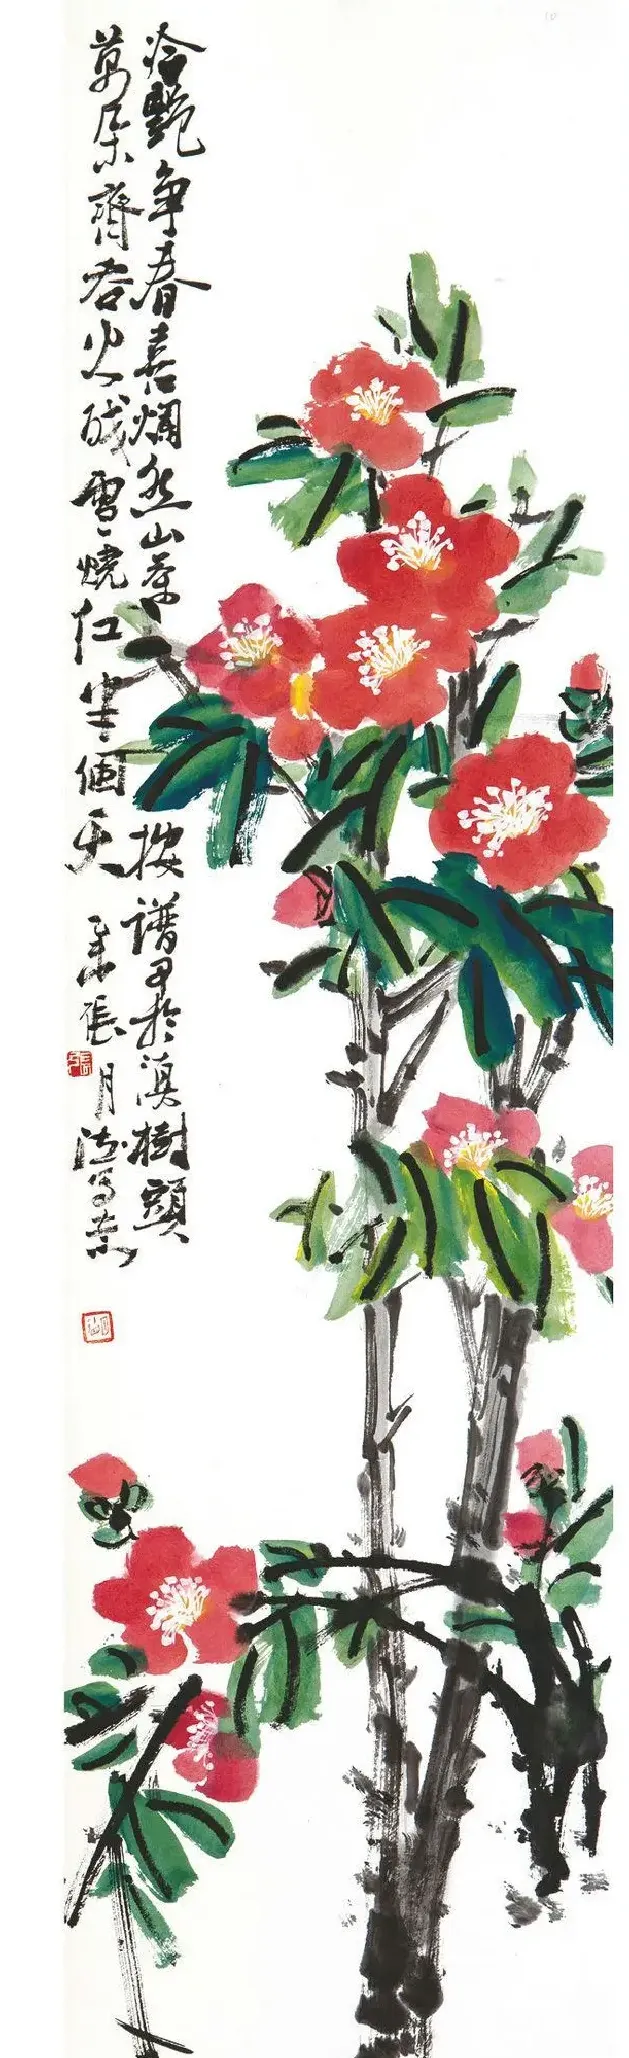 冷艷争春喜爛然山茶按譜甲於滇樹頭
萬朵齊吞火殘雪燒红半個天 張月